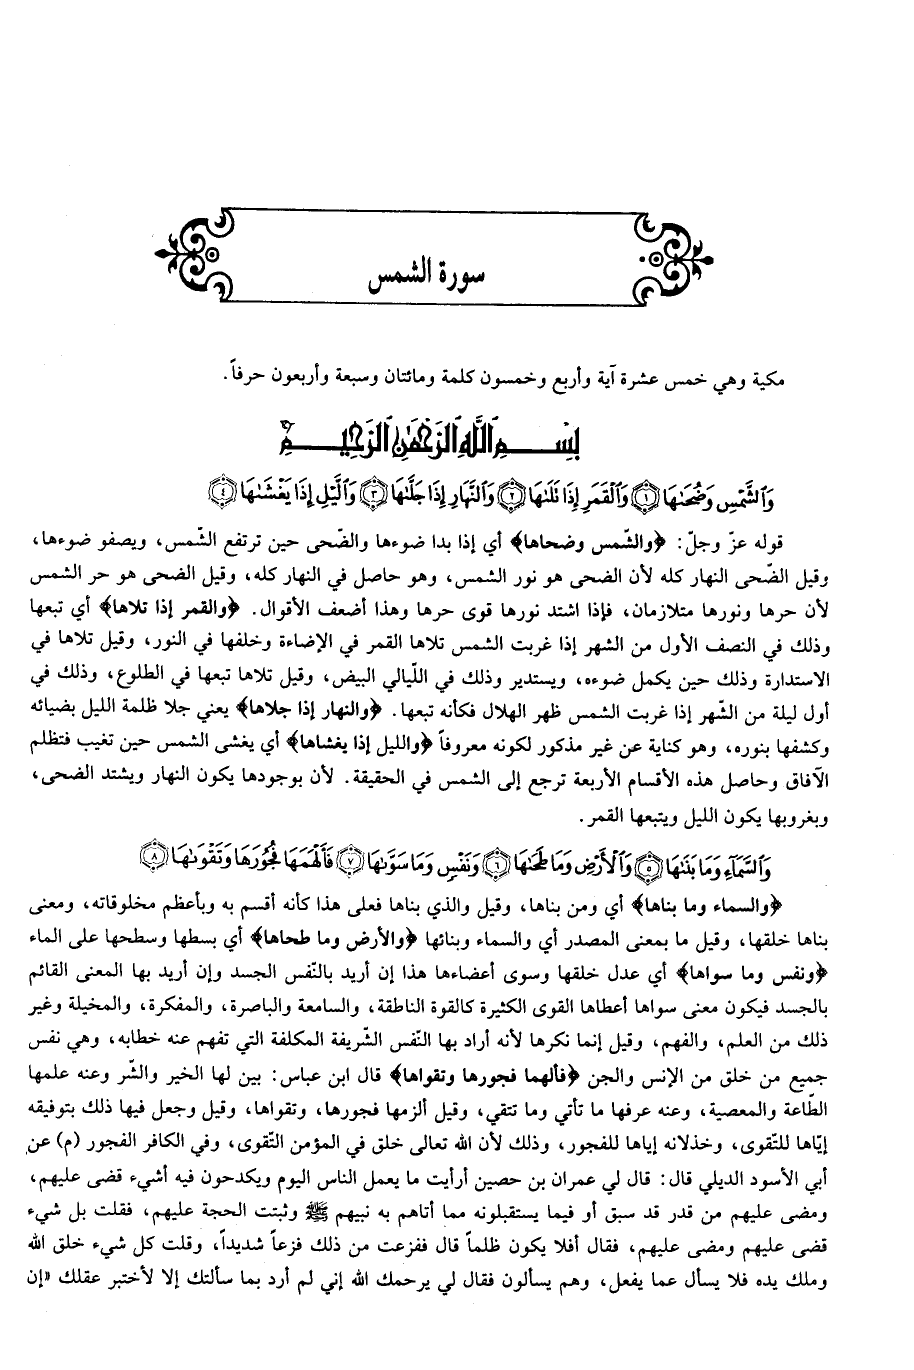 سورة الشمس
مكية وهي خمس عشرة آية وأربع وخمسون كلمة ومائتان وسبعة وأربعون حرفاً.
بِسْمِ ٱللَّهِ ٱلرَّحْمَٰنِ ٱلرَّحِيمِ
وَٱلشَّمْسِ وَضُحَىٰهَا ﴿١﴾ وَٱلْقَمَرِ إِذَا تَلَىٰهَا ﴿٢﴾ وَٱلنَّهَارِ إِذَا جَلَّىٰهَا ﴿٣﴾ وَٱلَّيْلِ إِذَا يَغْشَىٰهَا ﴿٤﴾
قوله عزّ وجلّ: ﴿والشّمس وضحاها﴾ أي إذا بدا ضوءها والضّحى حين ترتفع الشّمس، ويصفو ضوءها،
وقيل الضّحى النهار كله لأن الضحى هو نور الشمس، وهو حاصل في النهار كله، وقيل الضحى هو حر الشمس
لأن حرها ونورها متلازمان، فإذا اشتد نورها قوى حرها وهذا أضعف الأقوال. ﴿والقمر إذا تلاها﴾ أي تبعها
وذلك في النصف الأول من الشهر إذا غربت الشمس تلاها القمر في الإضاءة وخلفها في النور، وقيل تلاها في
الاستدارة وذلك حين يكمل ضوءه، ويستدير وذلك في اللّيالي البيض، وقيل تلاها تبعها في الطلوع، وذلك في
أول ليلة من الشّهر إذا غربت الشمس ظهر الهلال فكأنه تبعها. ﴿والنهار إذا جلاها﴾ يعني جلا ظلمة الليل بضيائه
وكشفها بنوره، وهو كناية عن غير مذكور لكونه معروفاً ﴿والليل إذا يغشاها﴾ أي يغشى الشمس حين تغيب فتظلم
الآفاق وحاصل هذه الأقسام الأربعة ترجع إلى الشمس في الحقيقة. لأن بوجودها يكون النهار ويشتد الضحى،
وبغروبها يكون الليل ويتبعها القمر.
وَٱلسَّمَآءِ وَمَا بَنَىٰهَا ﴿٥﴾ وَٱلْأَرْضِ وَمَا طَحَىٰهَا ﴿٦﴾ وَنَفْسٍ وَمَا سَوَّىٰهَا ﴿٧﴾ فَأَلْهَمَهَا فُجُورَهَا وَتَقْوَىٰهَا ﴿٨﴾
﴿والسماء وما بناها﴾ أي ومن بناها، وقيل والذي بناها فعلى هذا كأنه أقسم به وبأعظم مخلوقاته، ومعنى
بناها خلقها، وقيل ما بمعنى المصدر أي والسماء وبنائها ﴿والأرض وما طحاها﴾ أي بسطها وسطحها على الماء
﴿ونفس وما سواها﴾ أي عدل خلقها وسوى أعضاءها هذا إن أريد بالنّفس الجسد وإن أريد بها المعنى القائم
بالجسد فيكون معنى سواها أعطاها القوى الكثيرة كالقوة الناطقة، والسامعة والباصرة، والمفكرة، والمخيلة وغير
ذلك من العلم، والفهم، وقيل إنما نكرها لأنه أراد بها النّفس الشّريفة المكلفة التي تفهم عنه خطابه، وهي نفس
جميع من خلق من الإنس والجن ﴿فألهما فجورها وتقواها﴾ قال ابن عباس: بين لها الخير والشّر وعنه علمها
الطّاعة والمعصية، وعنه عرفها ما تأتي وما تتقي، وقيل ألزمها فجورها، وتقواها، وقيل وجعل فيها ذلك بتوفيقه
إيّاها للتّقوى، وخذلانه إياها للفجور، وذلك لأن الله تعالى خلق في المؤمن التّقوى، وفي الكافر الفجور (م) عن
أبي الأسود الديلي قال: قال لي عمران بن حصين أرأيت ما يعمل الناس اليوم ويكدحون فيه أشيء قضى عليهم،
ومضى عليهم من قدر قد سبق أو فيما يستقبلونه مما أتاهم به نبيهم ﷺ وثبتت الحجة عليهم، فقلت بل شيء
قضى عليهم ومضى عليهم، فقال أفلا يكون ظلماً قال ففزعت من ذلك فزعاً شديداً، وقلت كل شيء خلق الله
وملك يده فلا يسأل عما يفعل، وهم يسألون فقال لي يرحمك الله إني لم أرد بما سألتك إلا لأختبر عقلك «إن